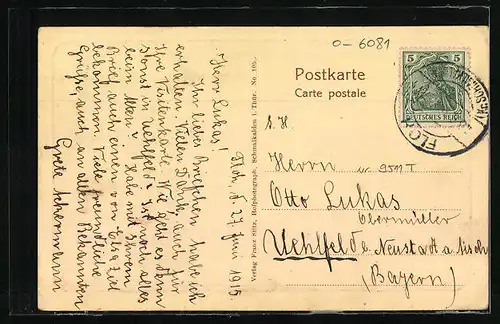 O-6081
Postkarte
Carte postale
5 5
DEUTSCHES REICH
Floh, d. 27. Juni 1915.
Herr Lukas!
Ihr liebes Briefchen habe ich
erhalten. Vielen Dank, auch für
Ihre Karte. Wie geht es denn
sonst in Uehlfeld? Ist noch alles
beim Alten? Habe mit Ihrem
Brief auch einen von
bekommen. Viele freundliche
Grüße, auch an allen Bekannten
Grete
Verlag Franz Hofphotograph, Schmalkalden i. Thür. No.
S. H.
Herrn
Otto Lukas
Obermüller
Uehlfeld b. Neustadt a. Aisch
(Bayern)